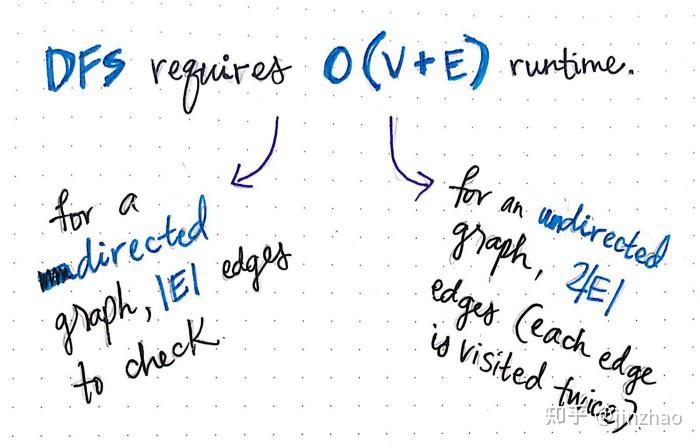 DFS requires O(V+E) runtime.
for a
directed
graph, |E| edges
to check
for an undirected
graph, 2|E|
edges (each edge
is visited twice)
知乎 @jinzhao